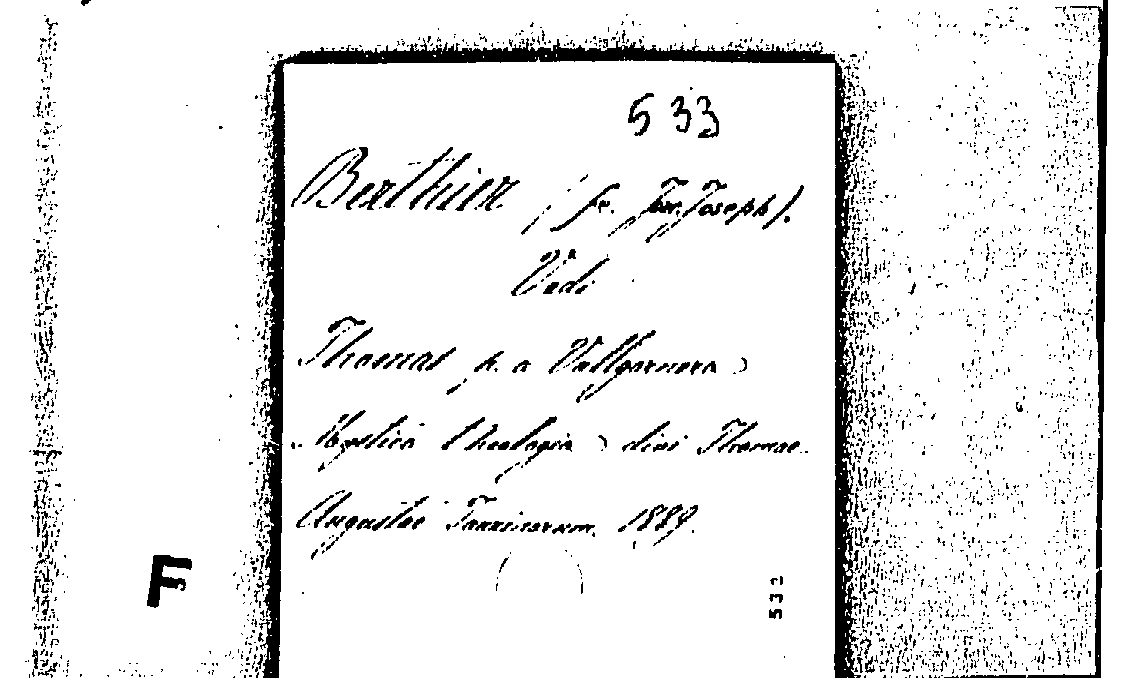 533
Berthier (fr. Joac. Joseph).
Vidi
Thomas fr. a Vallgornera
Mystica theologia divi Thomae.
Augustae Taurinorum. 1889.
F
532